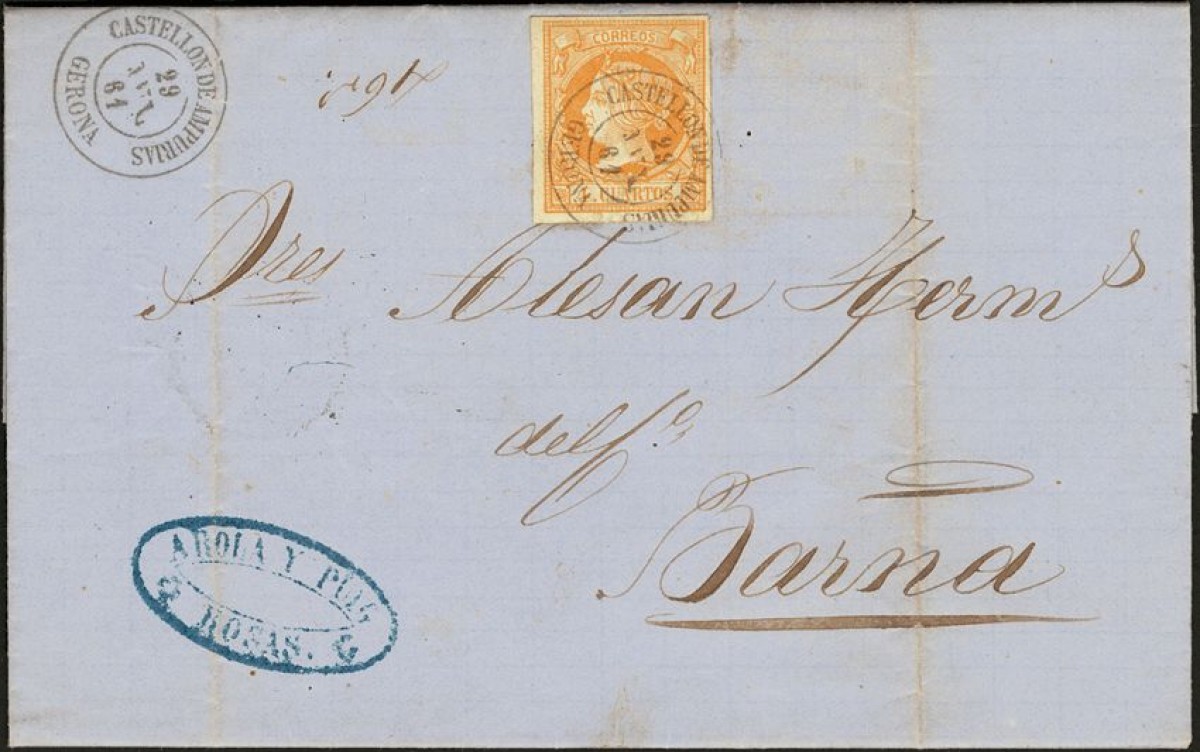 CASTELLON DE AMPURIAS
29
JUL
61
GERONA
CORREOS
CASTELLON DE AMPURIAS
29
JUL
61
GERONA
CUARTOS
Sres Alesan Herms
del Co
Barna
AROLA Y PUIG
ROSAS.